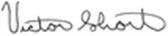 Victor Short